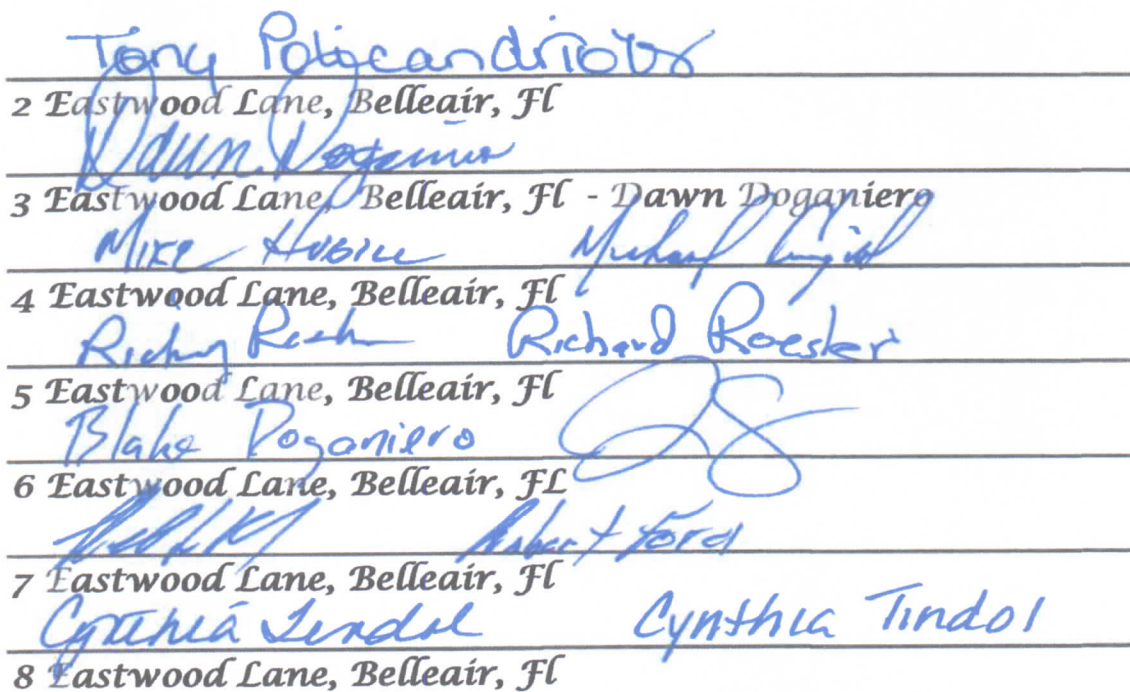 Tony Policandriotis
2 Eastwood Lane, Belleair, Fl
Dawn Doganiero
3 Eastwood Lane, Belleair, Fl - Dawn Doganiero
Mike Michael
4 Eastwood Lane, Belleair, Fl
Richard Roesler
5 Eastwood Lane, Belleair, Fl
Blake Doganiero
6 Eastwood Lane, Belleair, FL
Robert Ford
7 Eastwood Lane, Belleair, Fl
Cynthia Tindol Cynthia Tindol
8 Eastwood Lane, Belleair, Fl